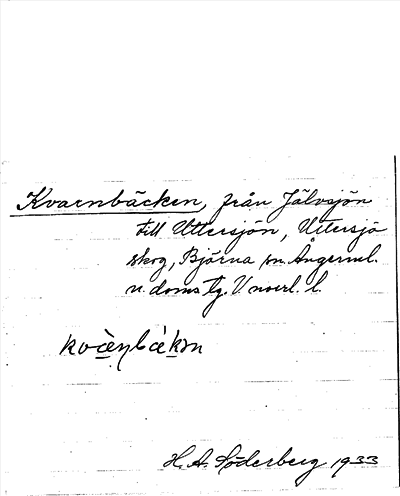 Kvarnbäcken, från Jälvsjön
till Uttersjön, Uttersjö
skog, Björna sn. Ångerml.
n. doms tg. V norrl. l.
H. A. Söderberg 1933